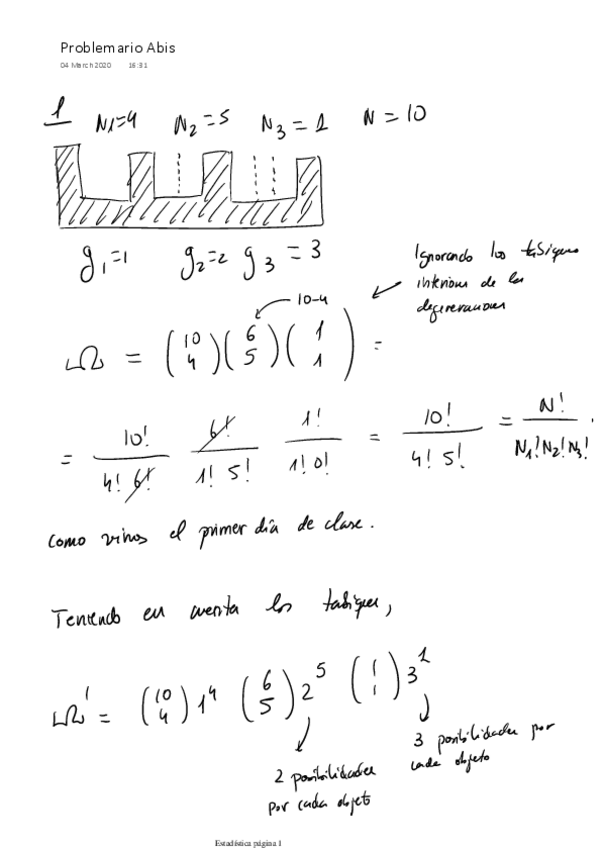 Problemario Abis
04 March 2020 16:31
1 N1=4 N2=5 N3=1 N=10
g1=1 g2=2 g3=3
Ignorando los tabiques
interiores de las
degeneraciones
10-4
Ω = (10 4)(6 5)(1 1) =
= 10!/(4! 6!) 6!/(1! 5!) 1!/(1! 0!) = 10!/(4! 5!) = N!/(N1! N2! N3!).
como vimos el primer día de clase.
Teniendo en cuenta los tabiques,
Ω' = (10 4) 1^4 (6 5) 2^5 (1 1) 3^1
2 posibilidades
por cada objeto
3 posibilidades por
cada objeto
Estadística página 1